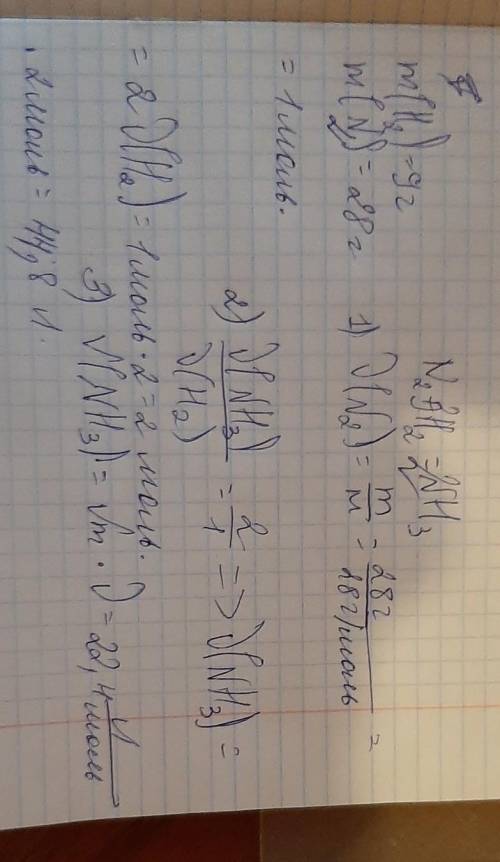 m(H₂)=9г
m(N₂)=28г
N₂+3H₂=2NH₃
1) ν(N₂)=m/M=28г/28г/моль=
=1моль.
2) ν(NH₃)/ν(H₂)=2/1=>ν(NH₃)=
=2ν(H₂)=1моль·2=2 моль.
3) V(NH₃)=Vm·ν=22,4 л/моль
·2моль=44,8 л.